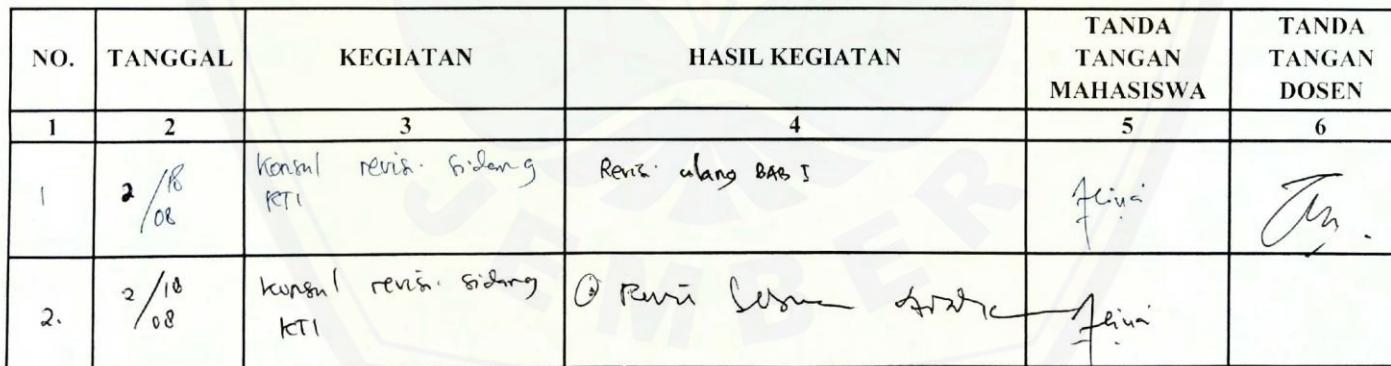 NO. TANGGAL KEGIATAN HASIL KEGIATAN TANDA TANGAN MAHASISWA TANDA TANGAN DOSEN
1 2 3 4 5 6
1 2/18 konsul revisi sidang Revisi ulang BAB I
08 KTI
2. 2/18 konsul revisi sidang Revisi
08 KTI
JEMBER